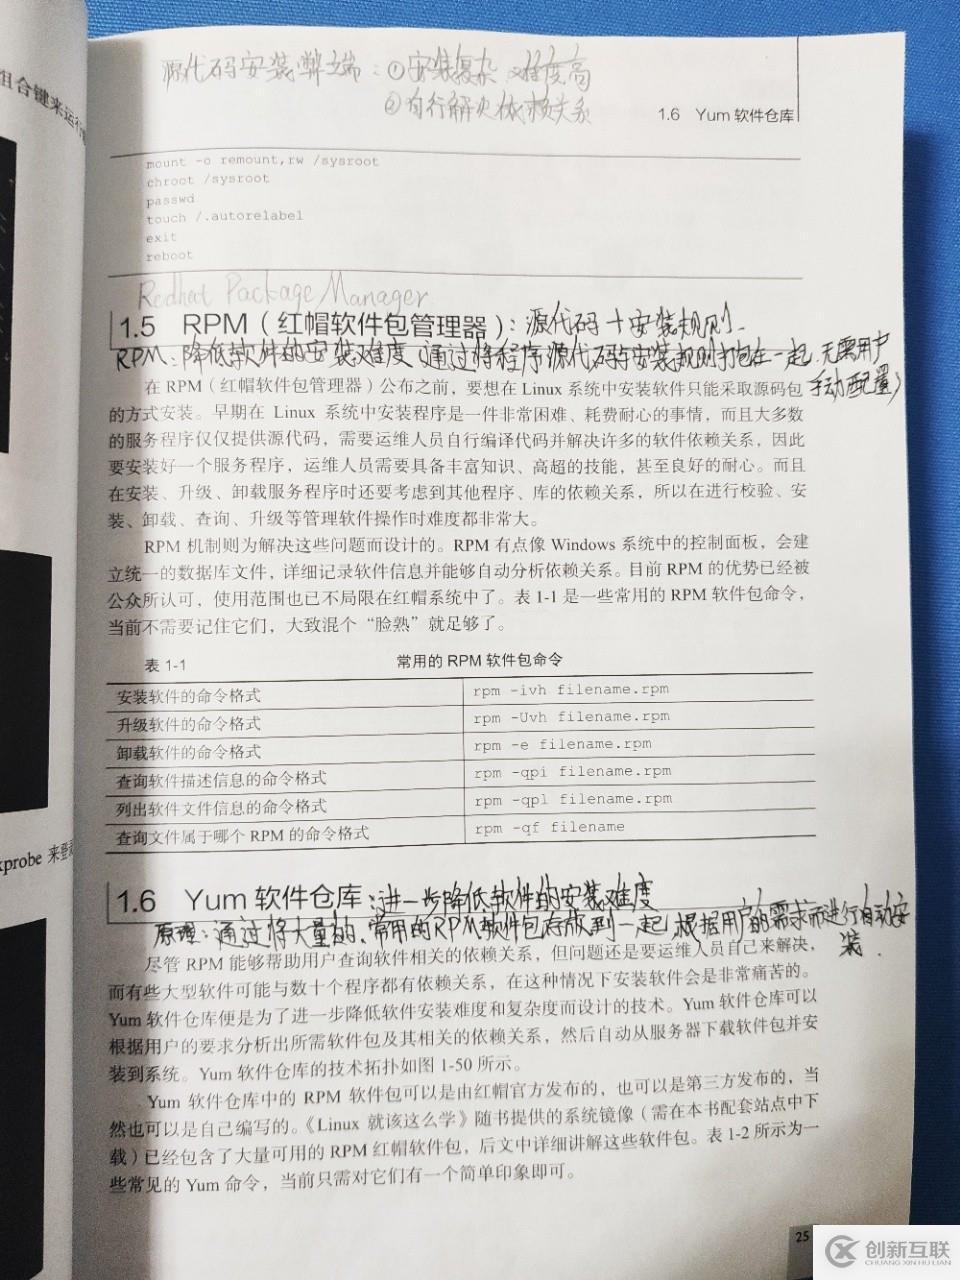 源代码安装弊端：①安装复杂 难度高
②自行解决依赖关系
组合键来运行
1.6 Yum 软件仓库
mount -o remount,rw /sysroot
chroot /sysroot
passwd
touch /.autorelabel
exit
reboot
Redhat Package Manager
1.5 RPM（红帽软件包管理器）：源代码＋安装规则
RPM：降低软件的安装难度（通过将程序源代码与安装规则打包在一起，无需用户
手动配置）
在 RPM（红帽软件包管理器）公布之前，要想在 Linux 系统中安装软件只能采取源码包
的方式安装。早期在 Linux 系统中安装程序是一件非常困难、耗费耐心的事情，而且大多数
的服务程序仅仅提供源代码，需要运维人员自行编译代码并解决许多的软件依赖关系，因此
要安装好一个服务程序，运维人员需要具备丰富知识、高超的技能，甚至良好的耐心。而且
在安装、升级、卸载服务程序时还要考虑到其他程序、库的依赖关系，所以在进行校验、安
装、卸载、查询、升级等管理软件操作时难度都非常大。
RPM 机制则为解决这些问题而设计的。RPM 有点像 Windows 系统中的控制面板，会建
立统一的数据库文件，详细记录软件信息并能够自动分析依赖关系。目前 RPM 的优势已经被
公众所认可，使用范围也已不局限在红帽系统中了。表 1-1 是一些常用的 RPM 软件包命令，
当前不需要记住它们，大致混个“脸熟”就足够了。
表 1-1 常用的 RPM 软件包命令
安装软件的命令格式 rpm -ivh filename.rpm
升级软件的命令格式 rpm -Uvh filename.rpm
卸载软件的命令格式 rpm -e filename.rpm
查询软件描述信息的命令格式 rpm -qpi filename.rpm
列出软件文件信息的命令格式 rpm -qpl filename.rpm
查询文件属于哪个 RPM 的命令格式 rpm -qf filename
xprobe 来登
1.6 Yum 软件仓库：进一步降低软件的安装难度
原理：通过将大量的、常用的RPM软件包存放到一起，根据用户的需求而进行自动安
装.
尽管 RPM 能够帮助用户查询软件相关的依赖关系，但问题还是要运维人员自己来解决，
而有些大型软件可能与数十个程序都有依赖关系，在这种情况下安装软件会是非常痛苦的。
Yum 软件仓库便是为了进一步降低软件安装难度和复杂度而设计的技术。Yum 软件仓库可以
根据用户的要求分析出所需软件包及其相关的依赖关系，然后自动从服务器下载软件包并安
装到系统。Yum 软件仓库的技术拓扑如图 1-50 所示。
Yum 软件仓库中的 RPM 软件包可以是由红帽官方发布的，也可以是第三方发布的，当
然也可以是自己编写的。《Linux 就该这么学》随书提供的系统镜像（需在本书配套站点中下
载）已经包含了大量可用的 RPM 红帽软件包，后文中详细讲解这些软件包。表 1-2 所示为一
些常见的 Yum 命令，当前只需对它们有一个简单印象即可。
25
创新互联
CHUANG XIN HU LIAN